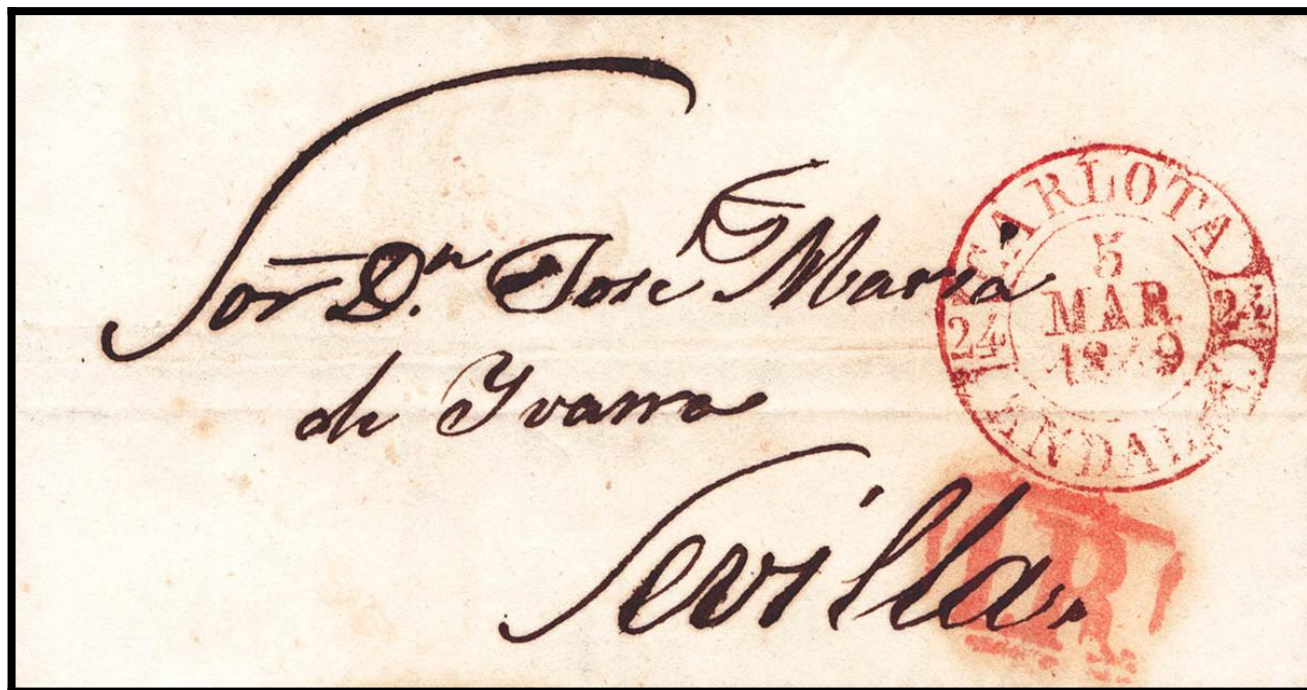 Sor. Dn. José Maria
de Yvarra
Sevilla.
CARLOTA
5
MAR
1849
24 24
ANDAL
1R